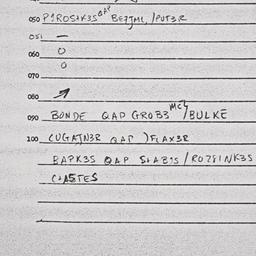 050 P1ROS+K3S QAP BEJJML, /PUT3R
051 —
060 O
070 O
080 ↗
090 BONDE QAP GROB3 MC3/BULKĒ
100 CUGATN3R QAP )FLAX3R
BAPK3S QAP SLAB1S / ROZ8INK3S
C+A5TES